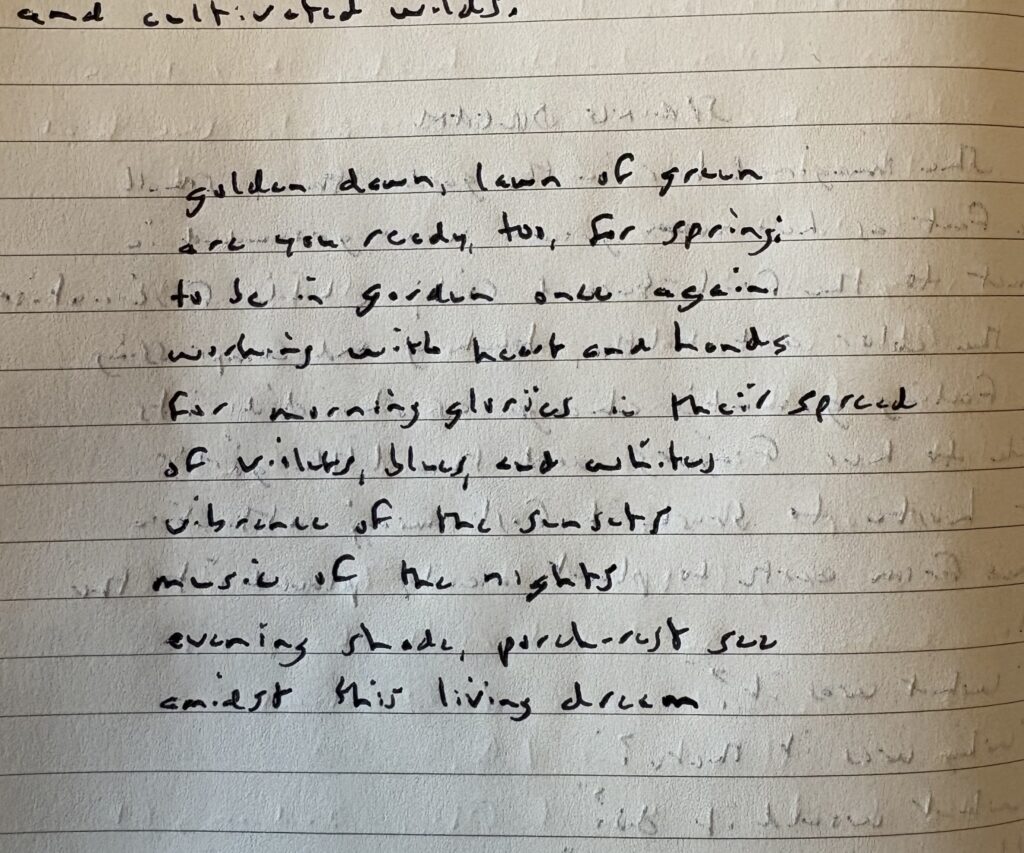 and cultivated wilds.
golden dawn, lawn of green
are you ready, too, for spring;
to be in garden once again
working with heart and hands
for morning glories in their spread
of violets, blues, and whites
vibrance of the sunsets
music of the nights
evening shade, porch-rest see
amidst this living dream